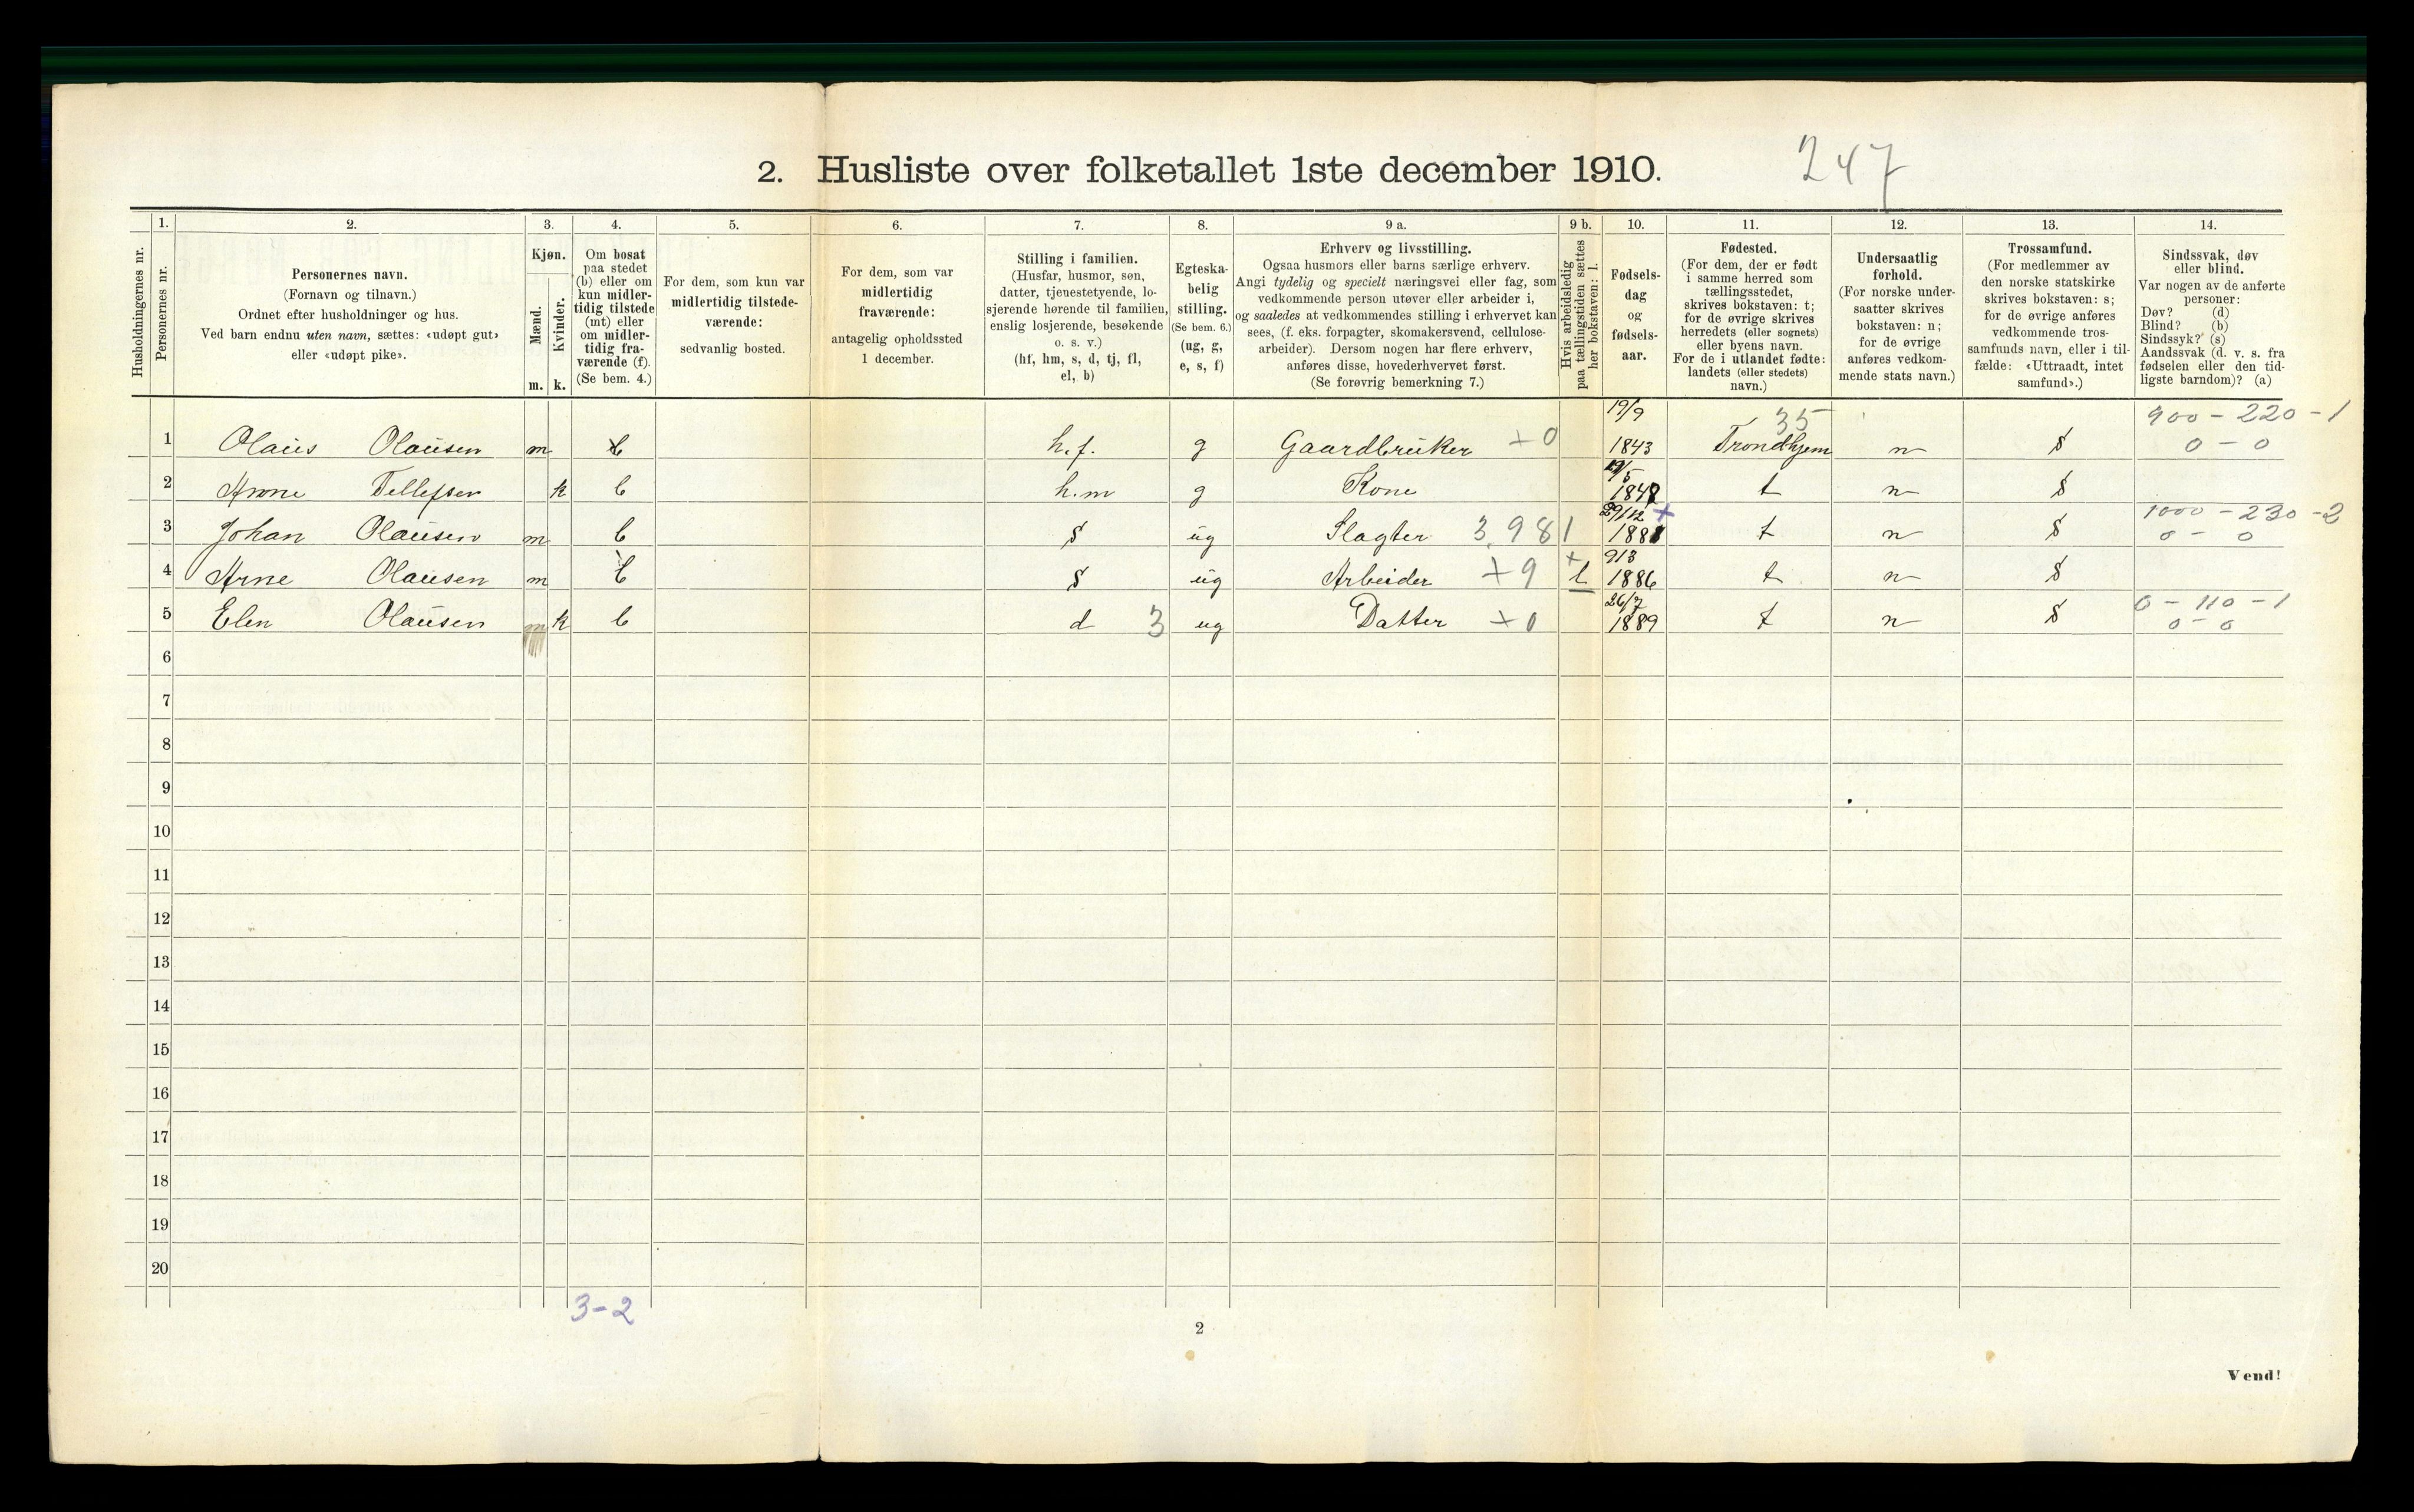 2. Husliste over folketallet 1ste december 1910. 247
Husholdningernes nr.
1. Personernes nr.
2. Personernes navn.
(Fornavn og tilnavn.)
Ordnet efter husholdninger og hus.
Ved barn endnu uten navn, sættes: «udøpt gut»
eller «udøpt pike».
3. Kjøn.
Mænd. Kvinder.
m. k.
4. Om bosat
paa stedet
(b) eller om
kun midler-
tidig tilstede
(mt) eller
om midler-
tidig fra-
værende (f).
(Se bem. 4.)
5. For dem, som kun var
midlertidig tilstede-
værende:
sedvanlig bosted.
6. For dem, som var
midlertidig
fraværende:
antagelig opholdssted
1 december.
7. Stilling i familien.
(Husfar, husmor, søn,
datter, tjenestetyende, lo-
sjerende hørende til familien,
enslig losjerende, besøkende
o. s. v.)
(hf, hm, s, d, tj, fl,
el, b)
8. Egteska-
belig
stilling.
(Se bem. 6.)
(ug, g,
e, s, f)
9 a. Erhverv og livsstilling.
Ogsaa husmors eller barns særlige erhverv.
Angi tydelig og specielt næringsvei eller fag, som
vedkommende person utøver eller arbeider i,
og saaledes at vedkommendes stilling i erhvervet kan
sees, (f. eks. forpagter, skomakersvend, cellulose-
arbeider). Dersom nogen har flere erhverv,
anføres disse, hovederhvervet først.
(Se forøvrig bemerkning 7.)
9 b. Hvis arbeidsledig
paa tællingstiden sættes
her bokstaven: l.
10. Fødsels-
dag
og
fødsels-
aar.
11. Fødested.
(For dem, der er født
i samme herred som
tællingsstedet,
skrives bokstaven: t;
for de øvrige skrives
herredets (eller sognets)
eller byens navn.
For de i utlandet fødte:
landets (eller stedets)
navn.)
12. Undersaatlig
forhold.
(For norske under-
saatter skrives
bokstaven: n;
for de øvrige
anføres vedkom-
mende stats navn.)
13. Trossamfund.
(For medlemmer av
den norske statskirke
skrives bokstaven: s;
for de øvrige anføres
vedkommende tros-
samfunds navn, eller i til-
fælde: «Uttraadt, intet
samfund».)
14. Sindssvak, døv
eller blind.
Var nogen av de anførte
personer:
Døv? (d)
Blind? (b)
Sindssyk? (s)
Aandssvak (d. v. s. fra
fødselen eller den tid-
ligste barndom)? (a)
19/9 35 900 - 220 - 1
1 Olaus Olausen m b h.f. g Gaardbruker + 0 1843 Trondhjem n s 0 - 0
2 Tellefsen k b h.m g Kone 1848 t n s
29/12 + 1000 - 230 - 2
3 Johan Olausen m b s ug Slagter 3,981 1881 t n s 0 - 0
+ 9/3
4 Arne Olausen m b s ug Arbeider + 9 l 1886 t n s
26/7 0 - 110 - 1
5 Elen Olausen m k b d 3 ug Datter + 0 1889 t n s 0 - 0
6
7
8
9
10
11
12
13
14
15
16
17
18
19
20
3-2
2
Vend!